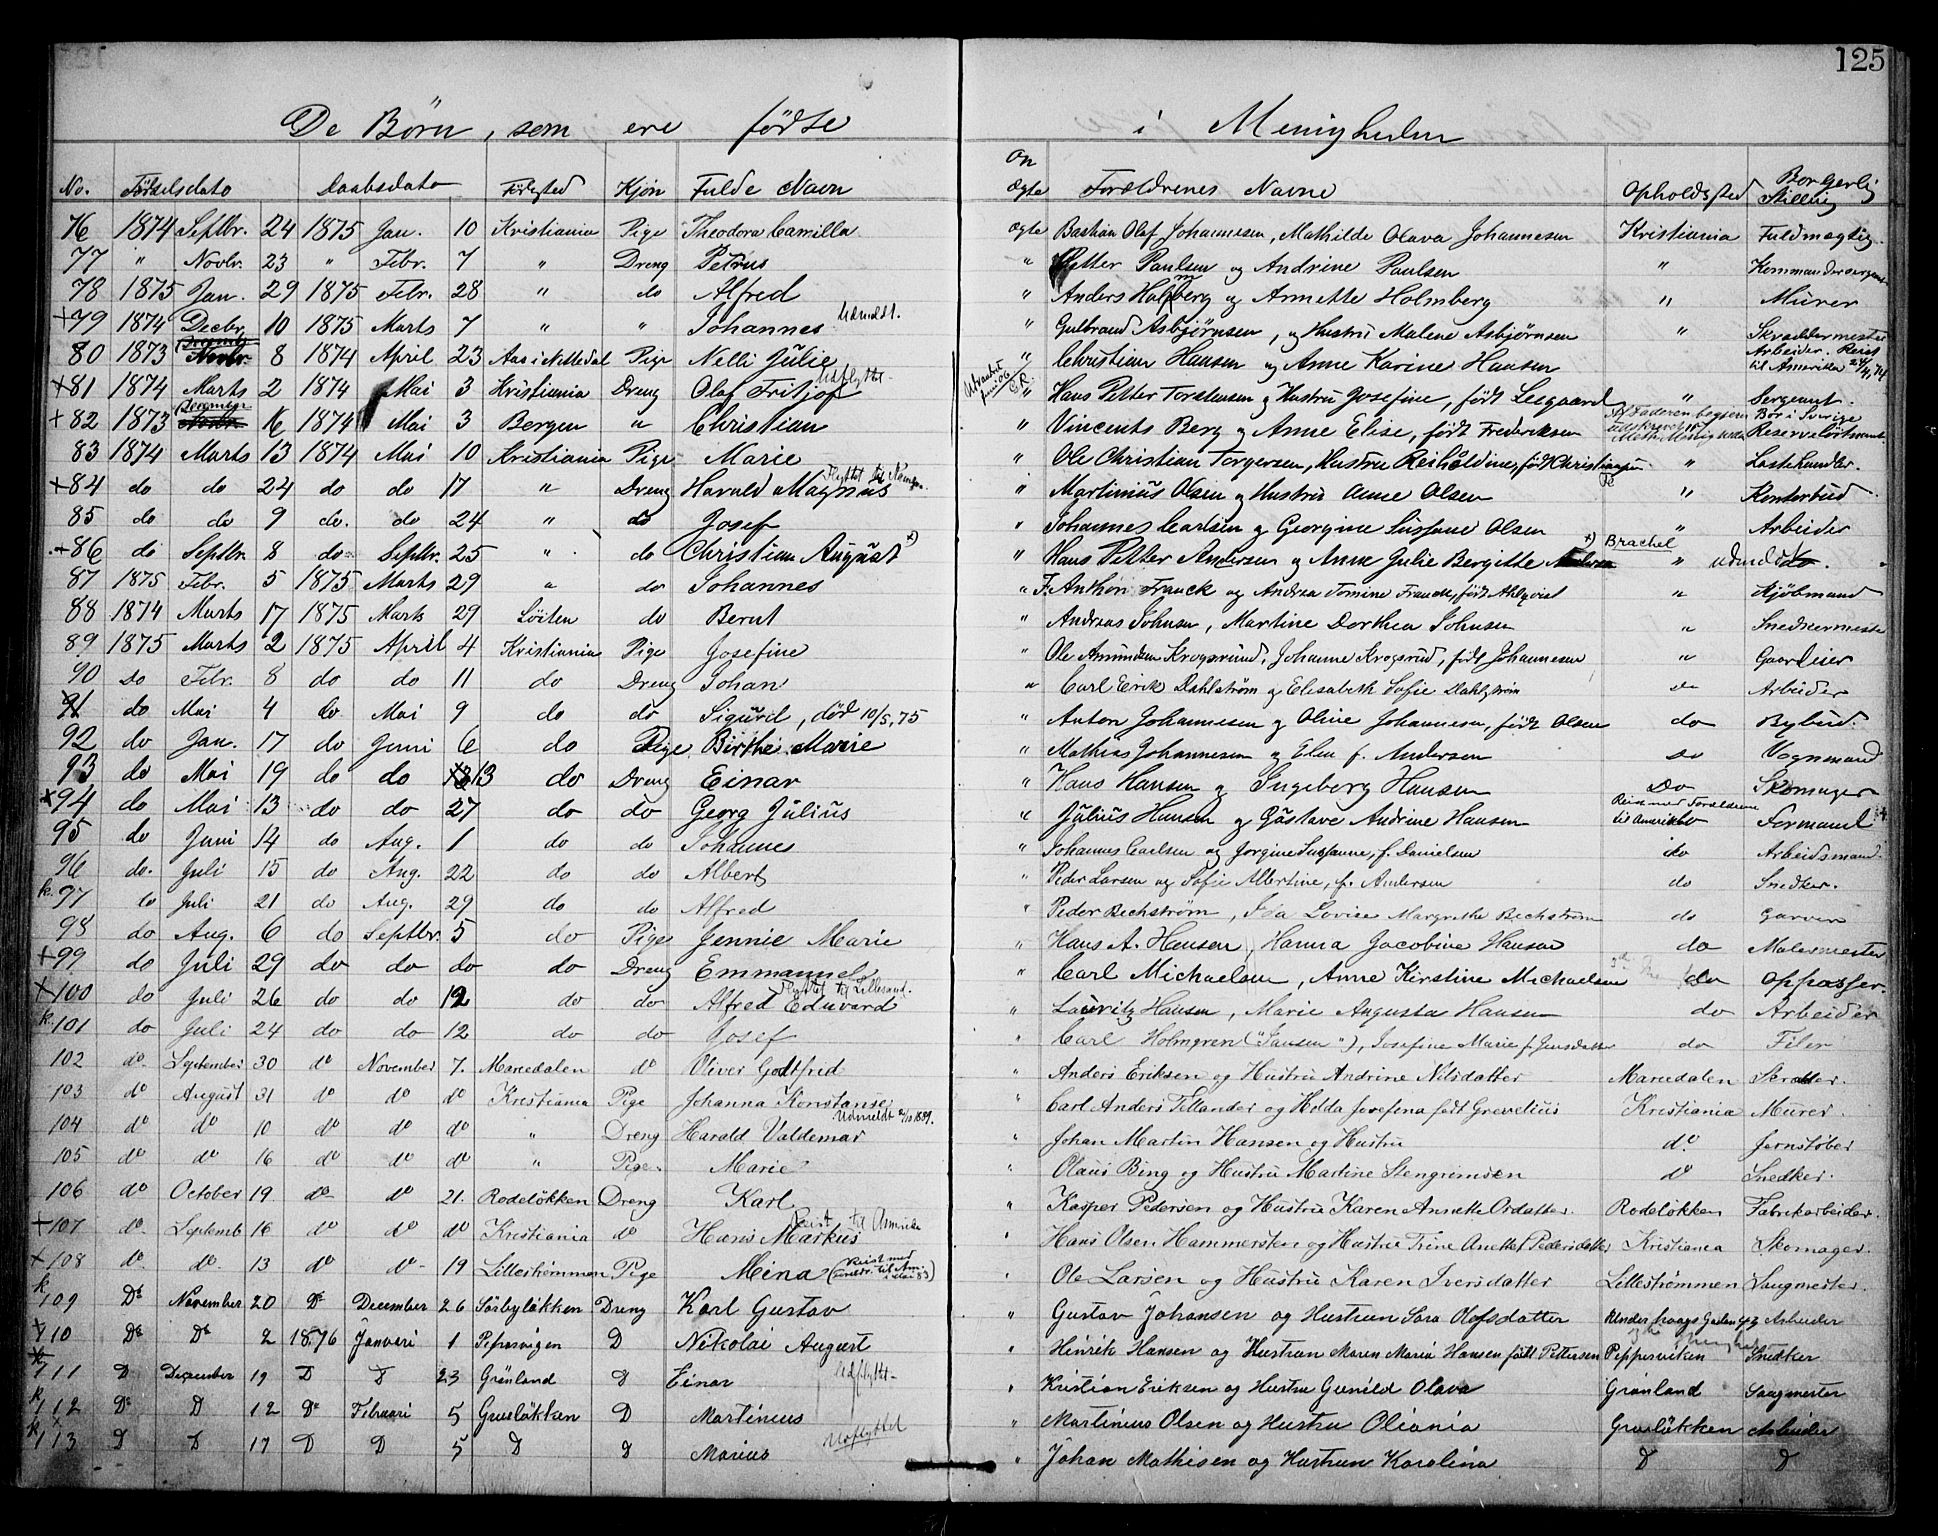 125
De Børn, som ere fødte i Menigheden
No. Fødselsdato Daabsdato Fødested Kjøn Fulde Navn Om ægte Forældrenes Navne Opholdssted Borgerlig Stilling
76 1874 Septbr. 24 1875 Jan. 10 Kristiania Pige Theodora Camilla ægte Bastian Olaf Johannesen, Mathilde Olava Johannesen Kristiania Fuldmægtig.
77 " Novbr. 23 " Febr. 7 " Dreng Petrus " Petter Paulsen og Andrine Paulsen "
78 1875 Jan. 29 1875 Febr. 28 " do Alfred " Anders Holmberg og Annette Holmberg " Murer
+79 1874 Decbr. 10 1875 Marts 7 " " Johannes Udmeldt. " Gulbrand Asbjørnsen, og Hustru Malene Asbjørnsen " Skræddermester
80 1873 December 8 1874 April 23 Aas i Nittedal Pige Nelli Julie " Christian Hansen og Anne Karine Hansen Arbeider. Reist til Amerika
+81 1874 Marts 2 1874 Mai 3 Kristiania Dreng Olaf Fritjof Udflyttet. " Hans Petter Torstensen og Hustru Josefine, født Leegaard " Sergeant.
+82 1873 December 16 1874 Mai 3 Bergen " Christian " Vincents Berg og Anne Elise, født Frederiksen Bor i Sverige
83 1874 Marts 13 1874 Mai 10 Kristiania Pige Marie " Ole Christian Torgersen, Hustru "
+84 do do 24 do do 17 " Dreng Harald Magnus Flyttet til " Martinius Olsen og Hustru Anne Olsen " Kontorbud
85 do do 9 do. do 24 " do Josef " Johannes Carlsen og Georgine Susanne Olsen " Arbeider
+86 do Septbr. 8 do Septbr. 25 " do Christian August +) " Hans Petter Andersen og Anne Julie Bergitte +) Brachel " udmeldt.
87 1875 Febr. 5 1875 Marts 29 " do Johannes " F. Anthon Franck og Andrea Tomine Franck, født Ahlqvist " Kjøbmand
88 1874 Marts 17 1875 Marts 29 Løiten do Bernt " Andreas Johnsen, Martine Dorthea Johnsen " Snedkermester
89 1875 Marts 2 1875 April 4 Kristiania Pige Josefine " Ole Amundsen Krogsrund, Johanne Krogsrud, født Johannesen " Gaardeier
90 Do Febr. 8 do do 11 do Dreng Johan " Carl Erik Dahlstrøm og Elisabeth Sofie Dahlstrøm do Arbeider
91 do Mai 4 do Mai 9 do do Sigurd, død 10/5, 75 " Anton Johannesen og Oline Johannesen, født Olsen do Bybud.
92 do Jan. 17 do Juni 6 do Pige Birthe Marie " Mathias Johannesen og Elen f. Andersen do Vognmand
93 do Mai 19 do do 13 do Dreng Einar " Hans Hansen og Ingeborg Hansen Do Skomager
+94 do Mai 13 do do 27 do do Georg Julius " Julius Hansen og Gustave Andrine Hansen Reist med Forældrene til Amerika Formand
95 do Juni 14 do Aug. 1 do do Johannes " Johannes Carlsen og Jørgine Susanne, f. Danielsen do Arbeidsmand.
96 do. Juli 15 do Aug. 22 do do Albert " Peder Larsen og Sofie Albertine, f. Andersen do Snedker.
k. 97 do Juli 21 do Aug. 29 do do Alfred " Peder Bechstrøm, Ida Lovise Margrethe Bechstrøm do Garver
98 do Aug. 6 do Septbr. 5 do Pige Jennie Marie " Hans A. Hansen, Hanna Jacobine Hansen do Malermester
+99 do Juli 29 do do do do Dreng Emmanuel " Carl Michaelsen, Anne Kirstine Michaelsen do Oppasser.
+100 do Juli 26 do do 12 do do Alfred Eduvard Flyttet til Lillesand. " Lauritz Hansen, Marie Augusta Hansen do Arbeider
k. 101 do Juli 24 do do 12 do do Josef " Carl Holmgren ("Jansen"), Josefine Marie f. Jensdatter do Filer
102 do September 30 do November 7. Maredalen do Oliver Godtfred " Anders Eriksen og Hustru Andrine Nilsdatter Maredalen
103 do August 31 do do do Kristiania Pige Johanna Konstanse " Carl Anders Tellander og Holda Josefina født Grevelius Kristiania Murer.
104 do do 10 do do do " Dreng Harald Valdemar Udmeldt 2/10 1889. " Johan Martin Hansen og Hustru do. Jernstøber
105 do do 16 do do do " Pige. Marie " Olaus Bing og Hustru Martine Stengrimsen do Snedker.
106 do October 19 do do 21. Rodeløkken Dreng Karl " Kasper Pedersen og Hustru Karen Annette Ordatter Rodeløkken Fabrikarbeider.
+107 do Septemb 16 do do do Kristiania do Hans Markus Reist til Amerika " Hans Olsen Hammersten og Hustru Trine Anette Pedersdatter Kristiania Skomager.
+108 do. do 13 do do 19 Lillestrømmen Pige Mina (Reist med til Am. i mai 83) " Ole Larsen og Hustru Karen Iversdatter Lillestrømmen Saugmester.
k 109 Do November 20 Do December 26 Sørbyløkken Dreng Karl Gustav " Gustav Johansen og Hustrun Sara Olofsdatter Arbeider
+110 Do Do 2 1876 Januari 1 Pipervigen D Nikolai August " Hinrik Hansen og Hustrun Maren Maria Hansen født Pettersen Peppervicken Snedker
k 111 D December 19 D D 23 Grønland D Einar Udflytt. " Kristian Eriksen og Hustru Gunild Olava Grønland Saugmester
k 112 Do D 12 Do Februari 5 Grusløkken D Martinius " Martinius Olsen og Hustru Oliania Grusløkken Arbeider
k 113 D D 17 D D 5 D D Marius Udflyttet " Johan Mathisen og Hustrun Karolina D D